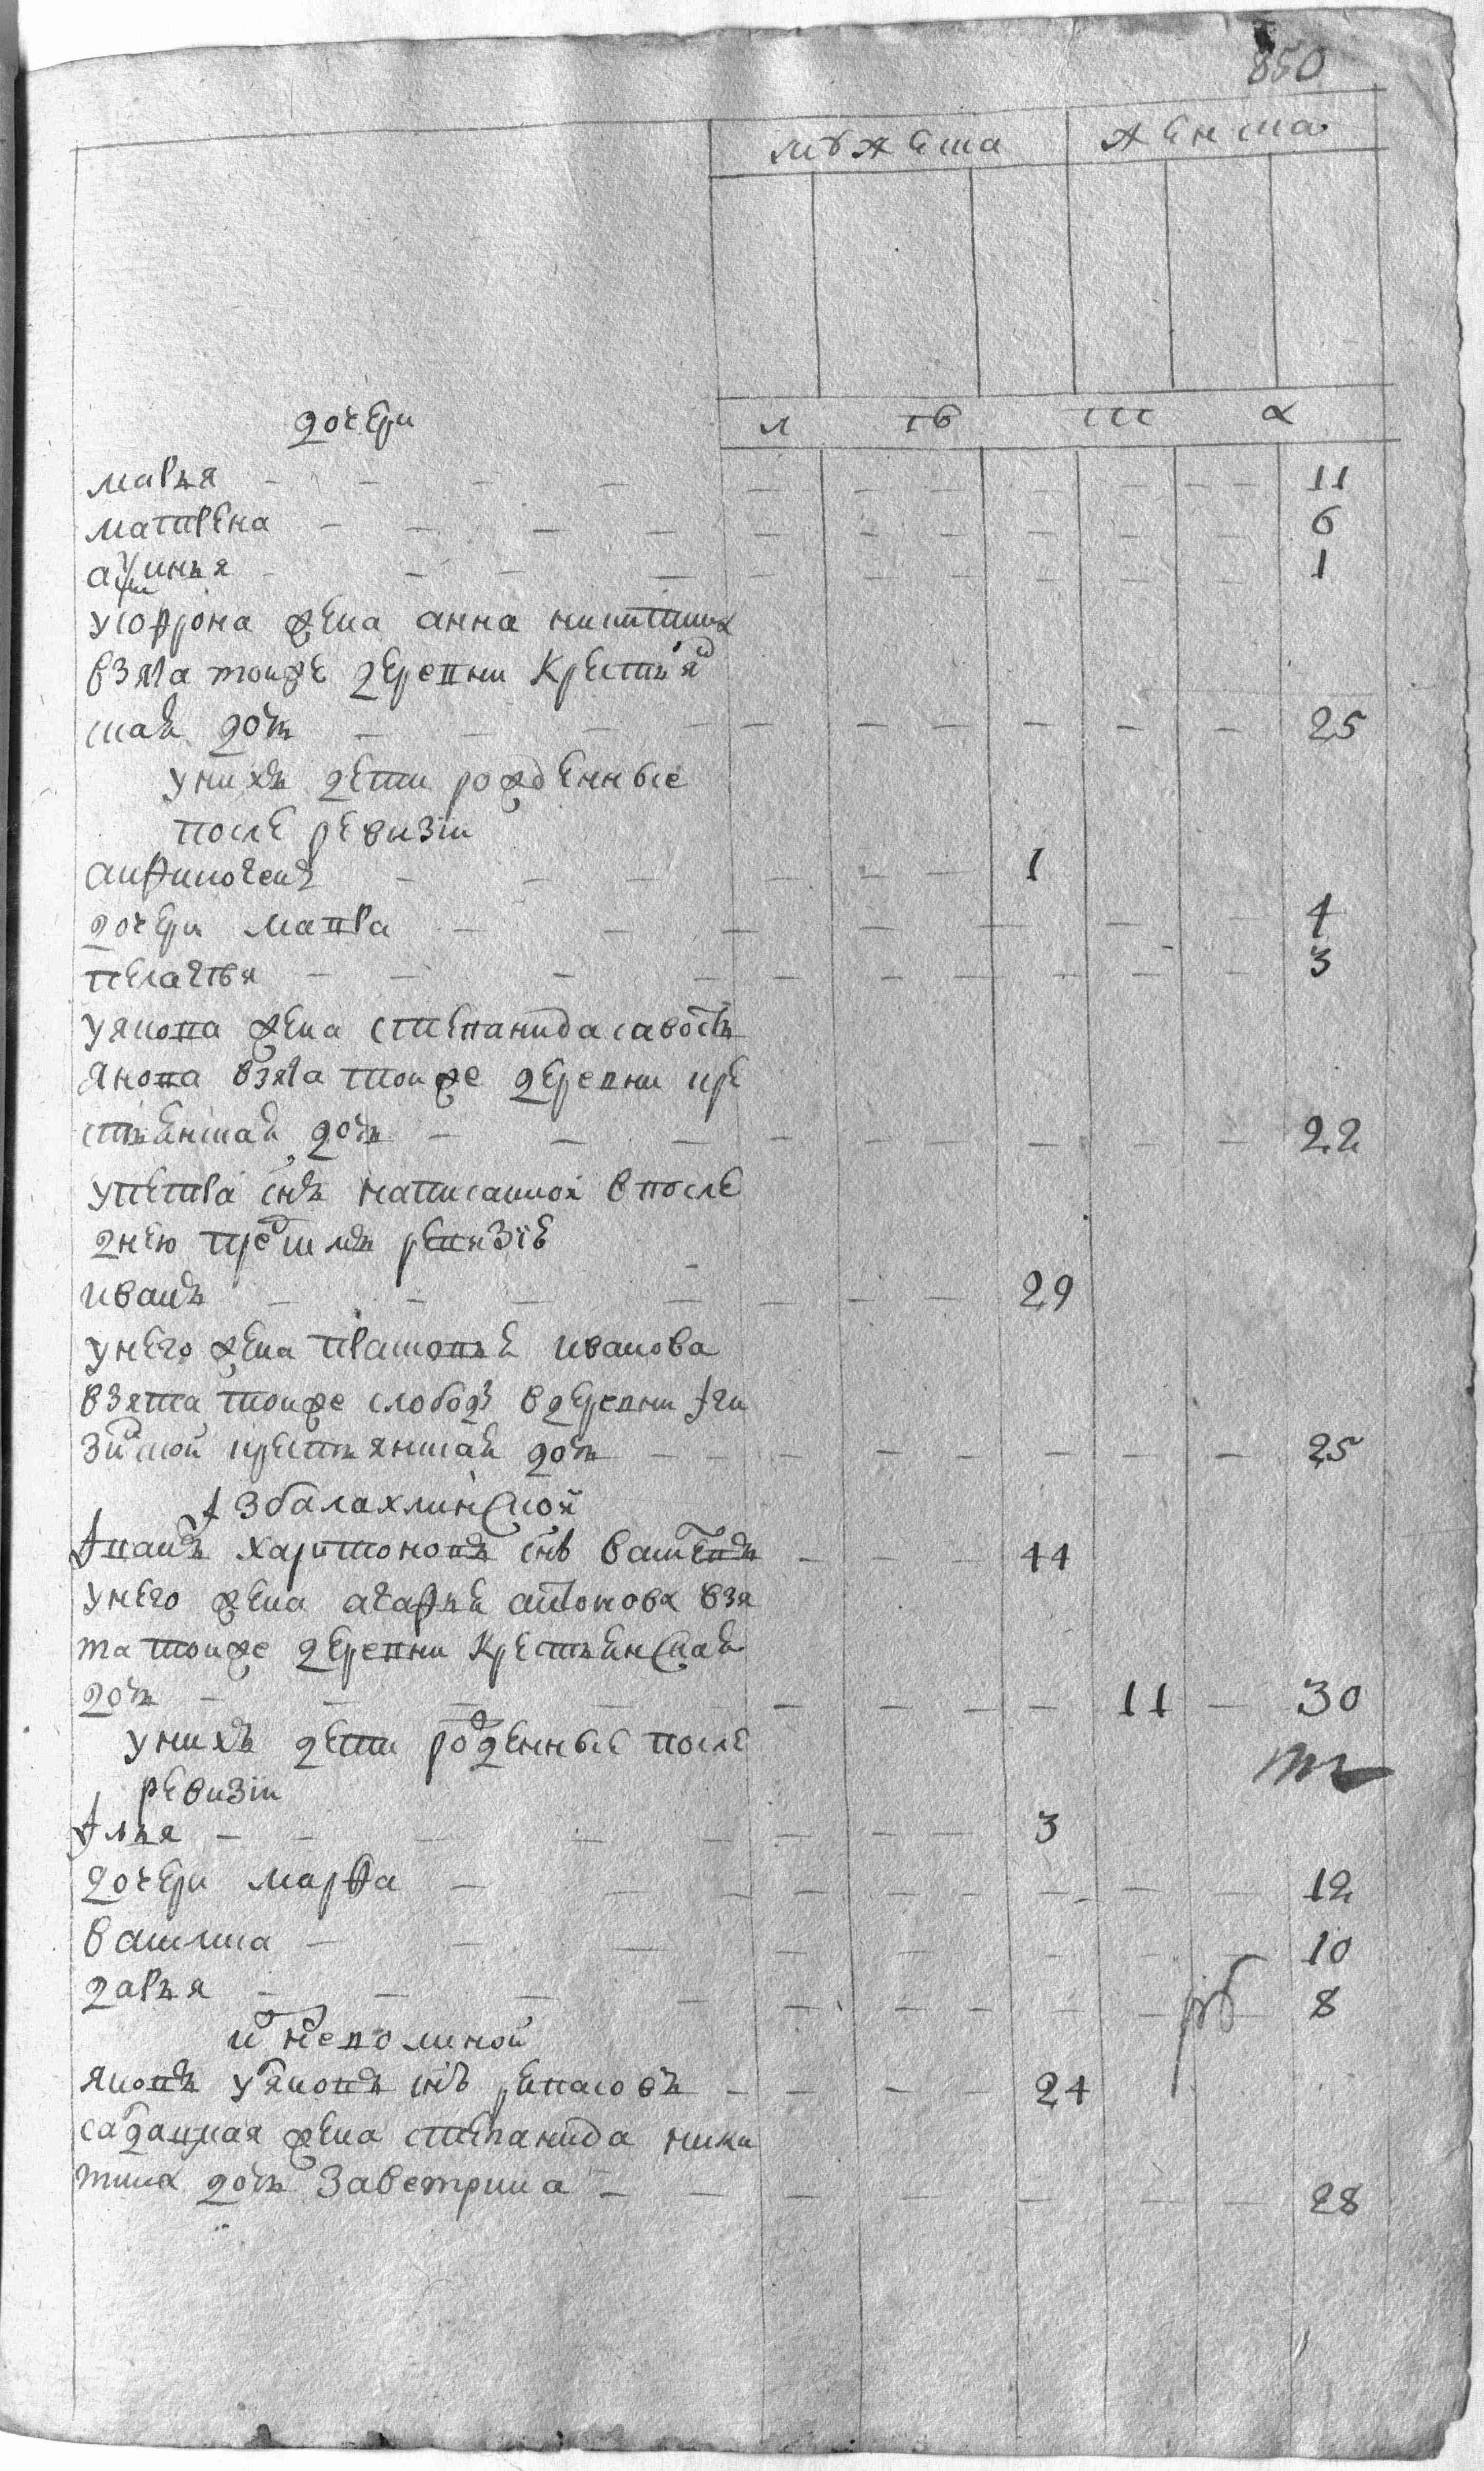 850
мужеска женска
дочери
лѣта
марья 11
матрена 6
аѳинья 1
у софрона жена анна никитина
взята тоиже деревни крестья
ская дочь 25
у нихъ дети рожденные
после ревизiи
анфиногенъ 1
дочери мавра 4
пелагѣя 3
у якова жена степанида савость
янова взята тоиже деревни кре
стьянская дочь 22
у петра снъ написанной в после
днею пред симъ ревизiе
иванъ 29
у него жена пелагея иванова
взята тоиже слободы в деревни
крестьянская дочь 25
Избалахлинской
Иванъ харитоновъ снъ
44
у него жена агафья антонова взя
та тоиже деревни крестьянская
дочь 11 30
у нихъ дети рожденные после
ревизiи
Илья 3
дочери марфа 12
василиса 10
дарья 8
яковъ снъ 24
жена степанида ники
тина дочь Заветрина 28